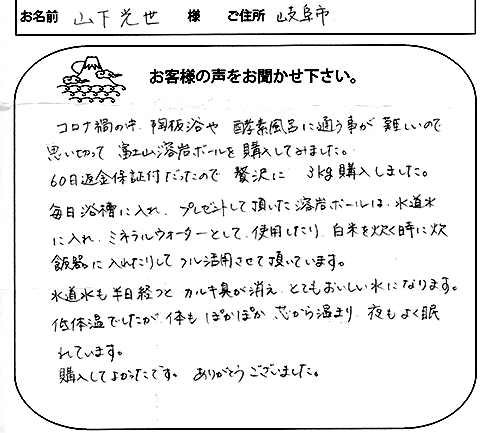 お名前 山下光世 様 ご住所 岐阜市
お客様の声をお聞かせ下さい。
コロナ禍の中、陶板浴や 酵素風呂に通う事が 難しいので
思い切って 富士山溶岩ボールを購入してみました。
60日返金保証付だったので 贅沢に 3kg購入しました。
毎日浴槽に入れ、プレゼントして頂いた溶岩ボールは、水道水
に入れ、ミネラルウォーターとして、使用したり、白米を炊く時に炊
飯器に入れたりして フル活用させて頂いています。
水道水も半日経つと カルキ臭が消え、とてもおいしい水になります。
低体温でしたが、体も ぽかぽか 芯から温まり、夜もよく眠
れています。
購入してよかったです。 ありがとうございました。